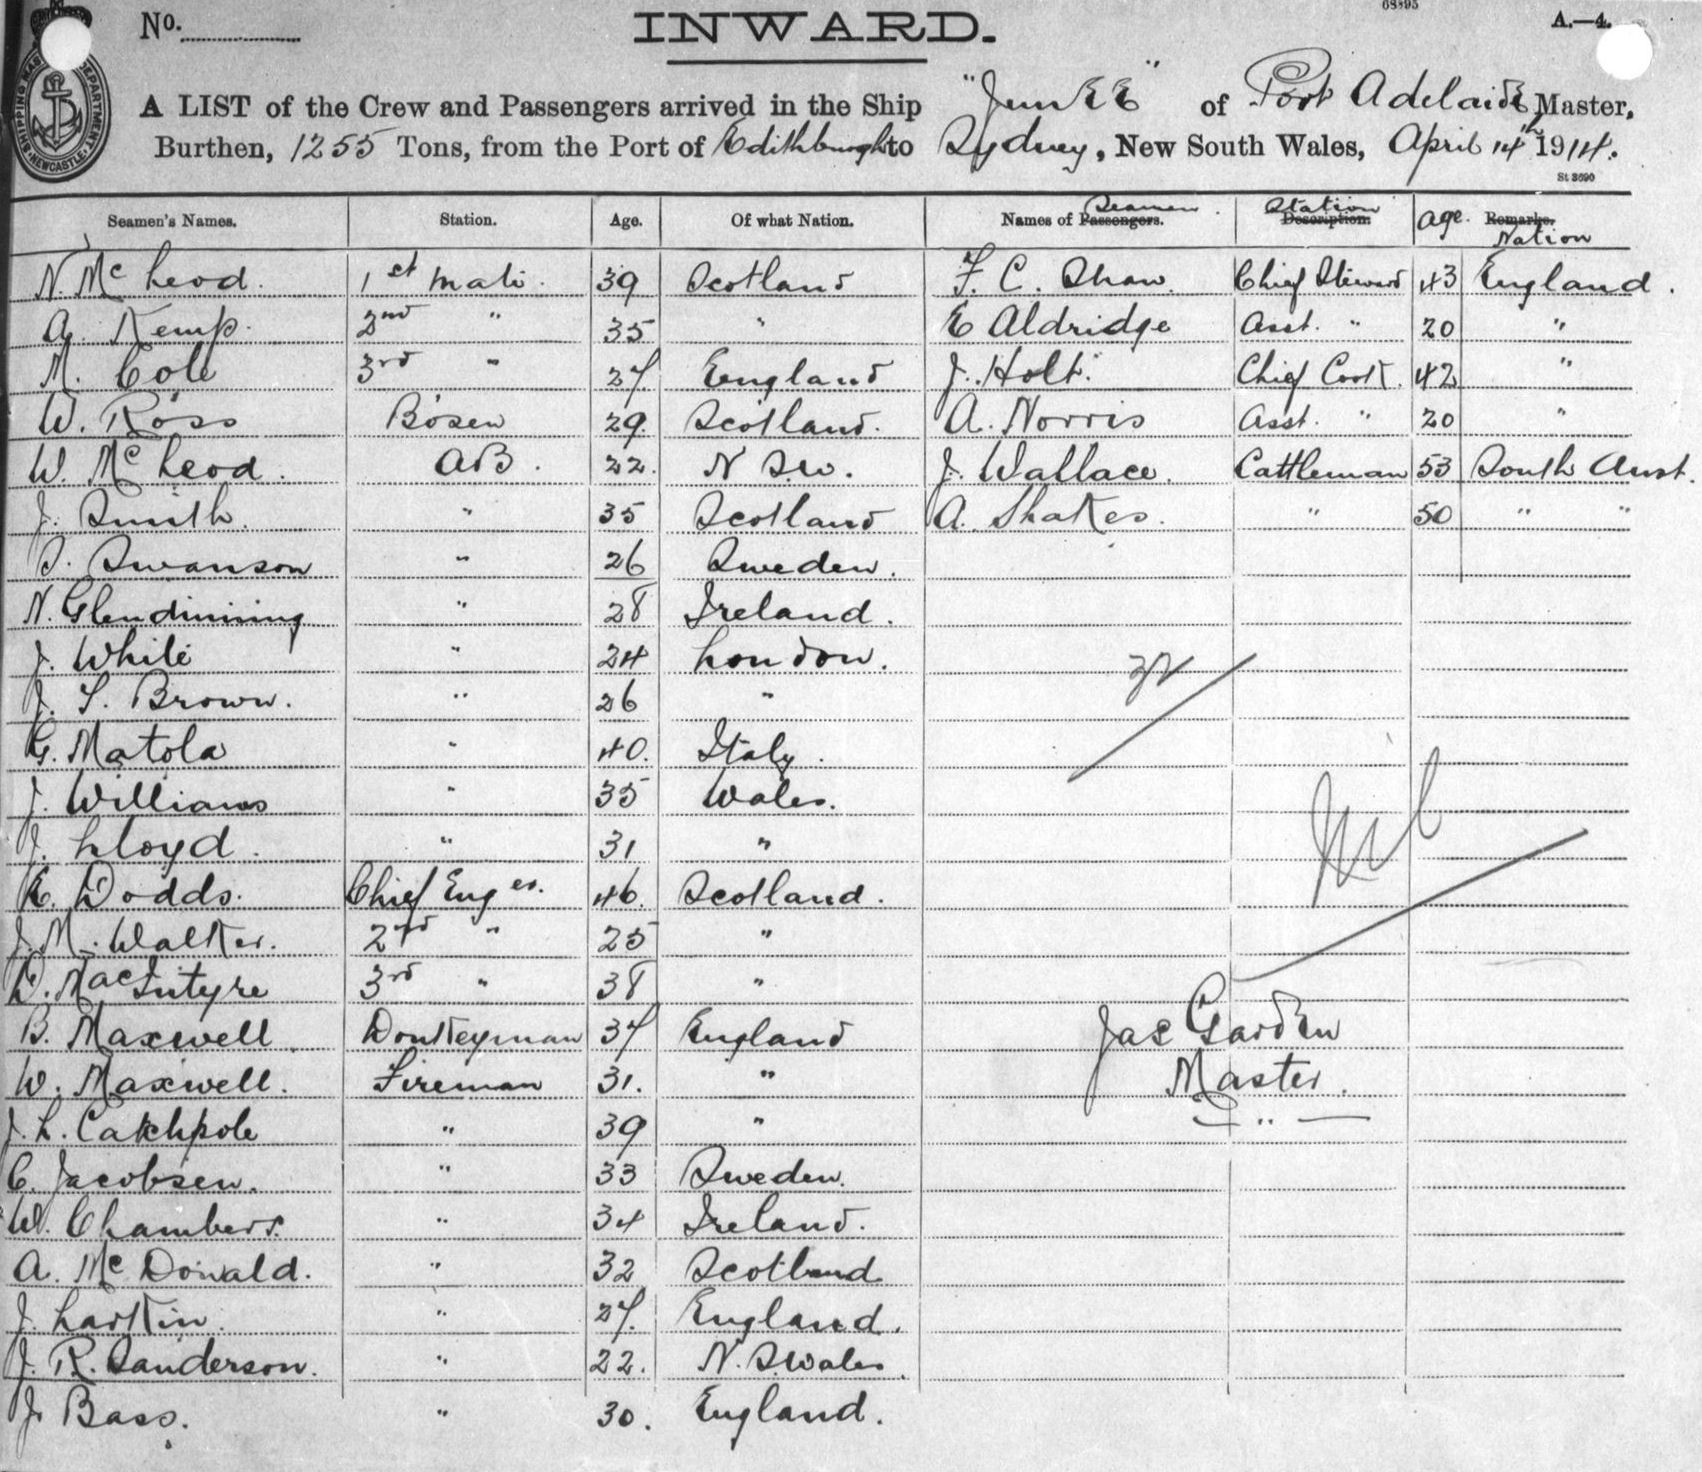 68895
No.
INWARD.
A.—4.
SHIPPING MASTER'S DEPARTMENT NEWCASTLE
A LIST of the Crew and Passengers arrived in the Ship "Junee" of Port Adelaide Master,
Burthen, 1255 Tons, from the Port of Edithburgh to Sydney, New South Wales, April 14th 1914.
St 3690
Seamen's Names. Station. Age. Of what Nation. Names of Passengers. Seamen Description. Station Age. Remarks. Nation
N. McLeod. 1st Mate. 39 Scotland F. C. Shaw. Chief Steward 43 England.
A. Kemp. 2nd " 35 " E Aldridge Asst. " 20 "
M. Cole 3rd " 27 England J. Holt. Chief Cook. 42 "
W. Ross Bosen 29. Scotland. A. Norris Asst. " 20 "
W. McLeod. AB. 22. N S.W. J. Wallace. Cattleman 53 South Aust.
J. Smith. " 35 Scotland A. Shakes. " 50 " "
S. Swanson " 26 Sweden.
N. Glendinning " 28 Ireland.
J. White " 24 London.
J. S. Brown. " 26 "
G. Matola " 40. Italy.
J. Williams " 35 Wales.
J. Lloyd. " 31 "
E. Dodds. Chief Enger. 46. Scotland.
J. M. Walker. 2nd " 25 "
D. MacIntyre 3rd " 38 "
B. Maxwell. Donkeyman 37 England Jas Garden
W. Maxwell. Fireman 31. " Master.
J. L. Catchpole " 39 "
C. Jacobsen. " 33 Sweden.
W. Chambers. " 34 Ireland.
A. McDonald. " 32 Scotland
J. Larkin. " 27. England.
J. R. Sanderson. " 22. N. S Wales
J. Bass. " 30. England.